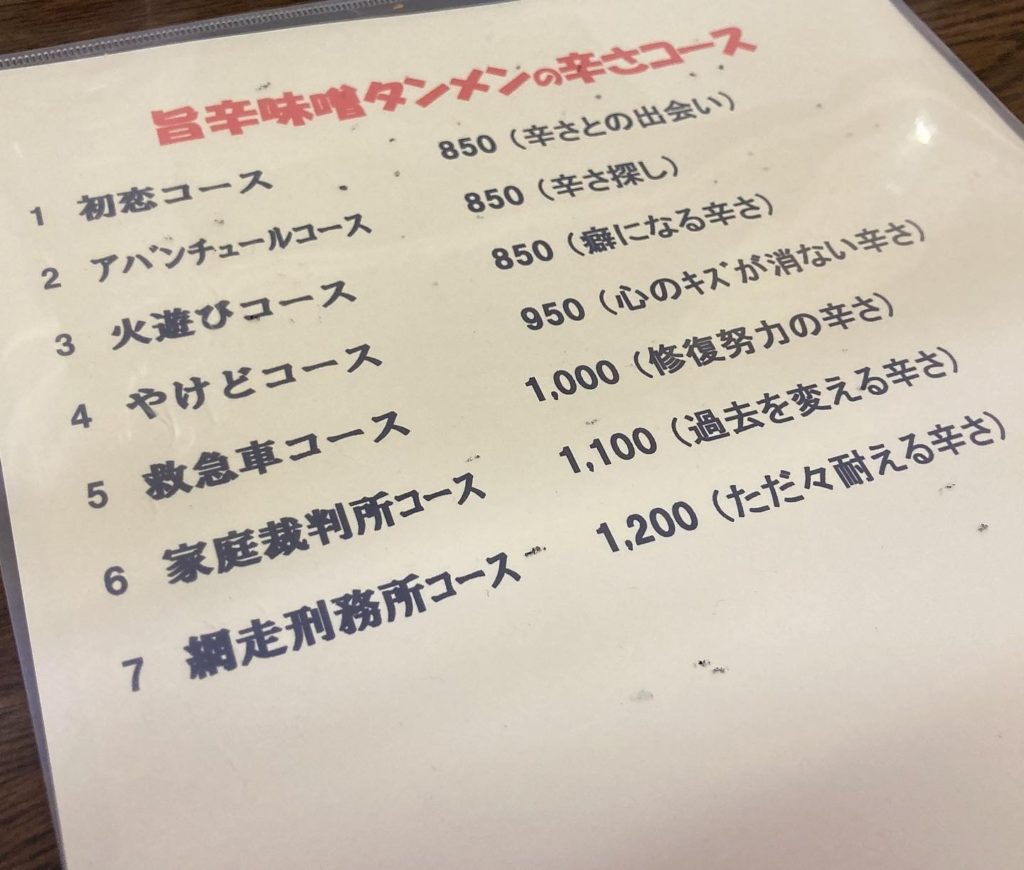 旨辛味噌タンメンの辛さコース
1 初恋コース 850（辛さとの出会い）
2 アバンチュールコース 850（辛さ探し）
3 火遊びコース 850（癖になる辛さ）
4 やけどコース 950（心のキズが消ない辛さ）
5 救急車コース 1,000（修復努力の辛さ）
6 家庭裁判所コース 1,100（過去を変える辛さ）
7 網走刑務所コース 1,200（ただ々耐える辛さ）